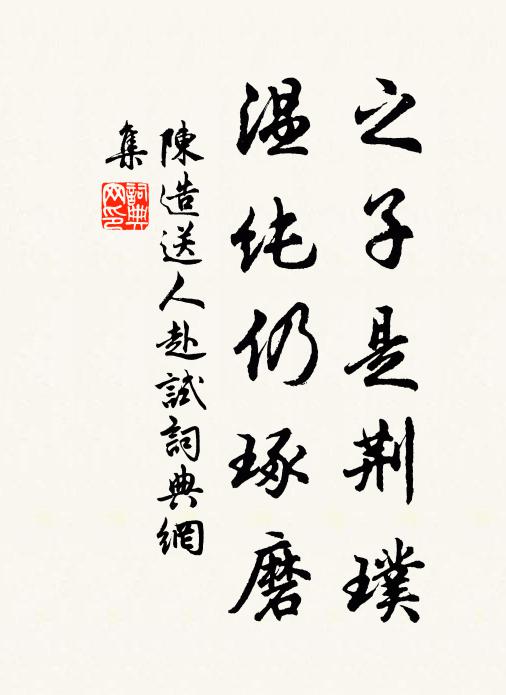 之子是荆璞
温纯仍琢磨
陳造送人赴試詞典網
集
詞典網印